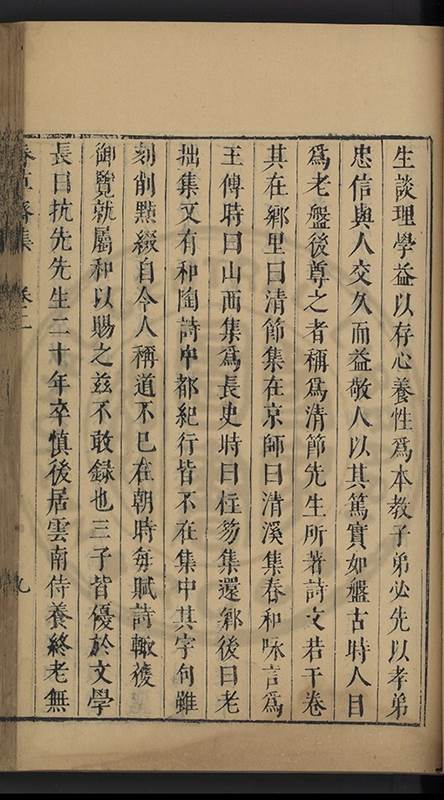 生談理學益以存心養性爲本教子弟必先以孝弟
忠信與人交久而益敬人以其篤實如盤古時人目
爲老盤後尊之者稱爲清節先生所著詩文若干卷
其在鄉里曰清節集在京師曰清溪集春和咏言爲
王傅時曰山西集爲長史時曰枉芻集還鄉後曰老
拙集又有和陶詩中都紀行皆不在集中其字句雖
刻削點綴自令人稱道不已在朝時每賦詩輙獲
御覽就屬和以賜之兹不敢録也三子皆優於文學
長曰抗先先生二十年卒慎後居雲南侍養終老無
集 卷二 九